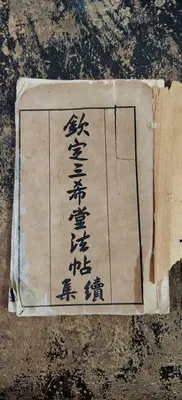 欽定三希堂法帖
續集